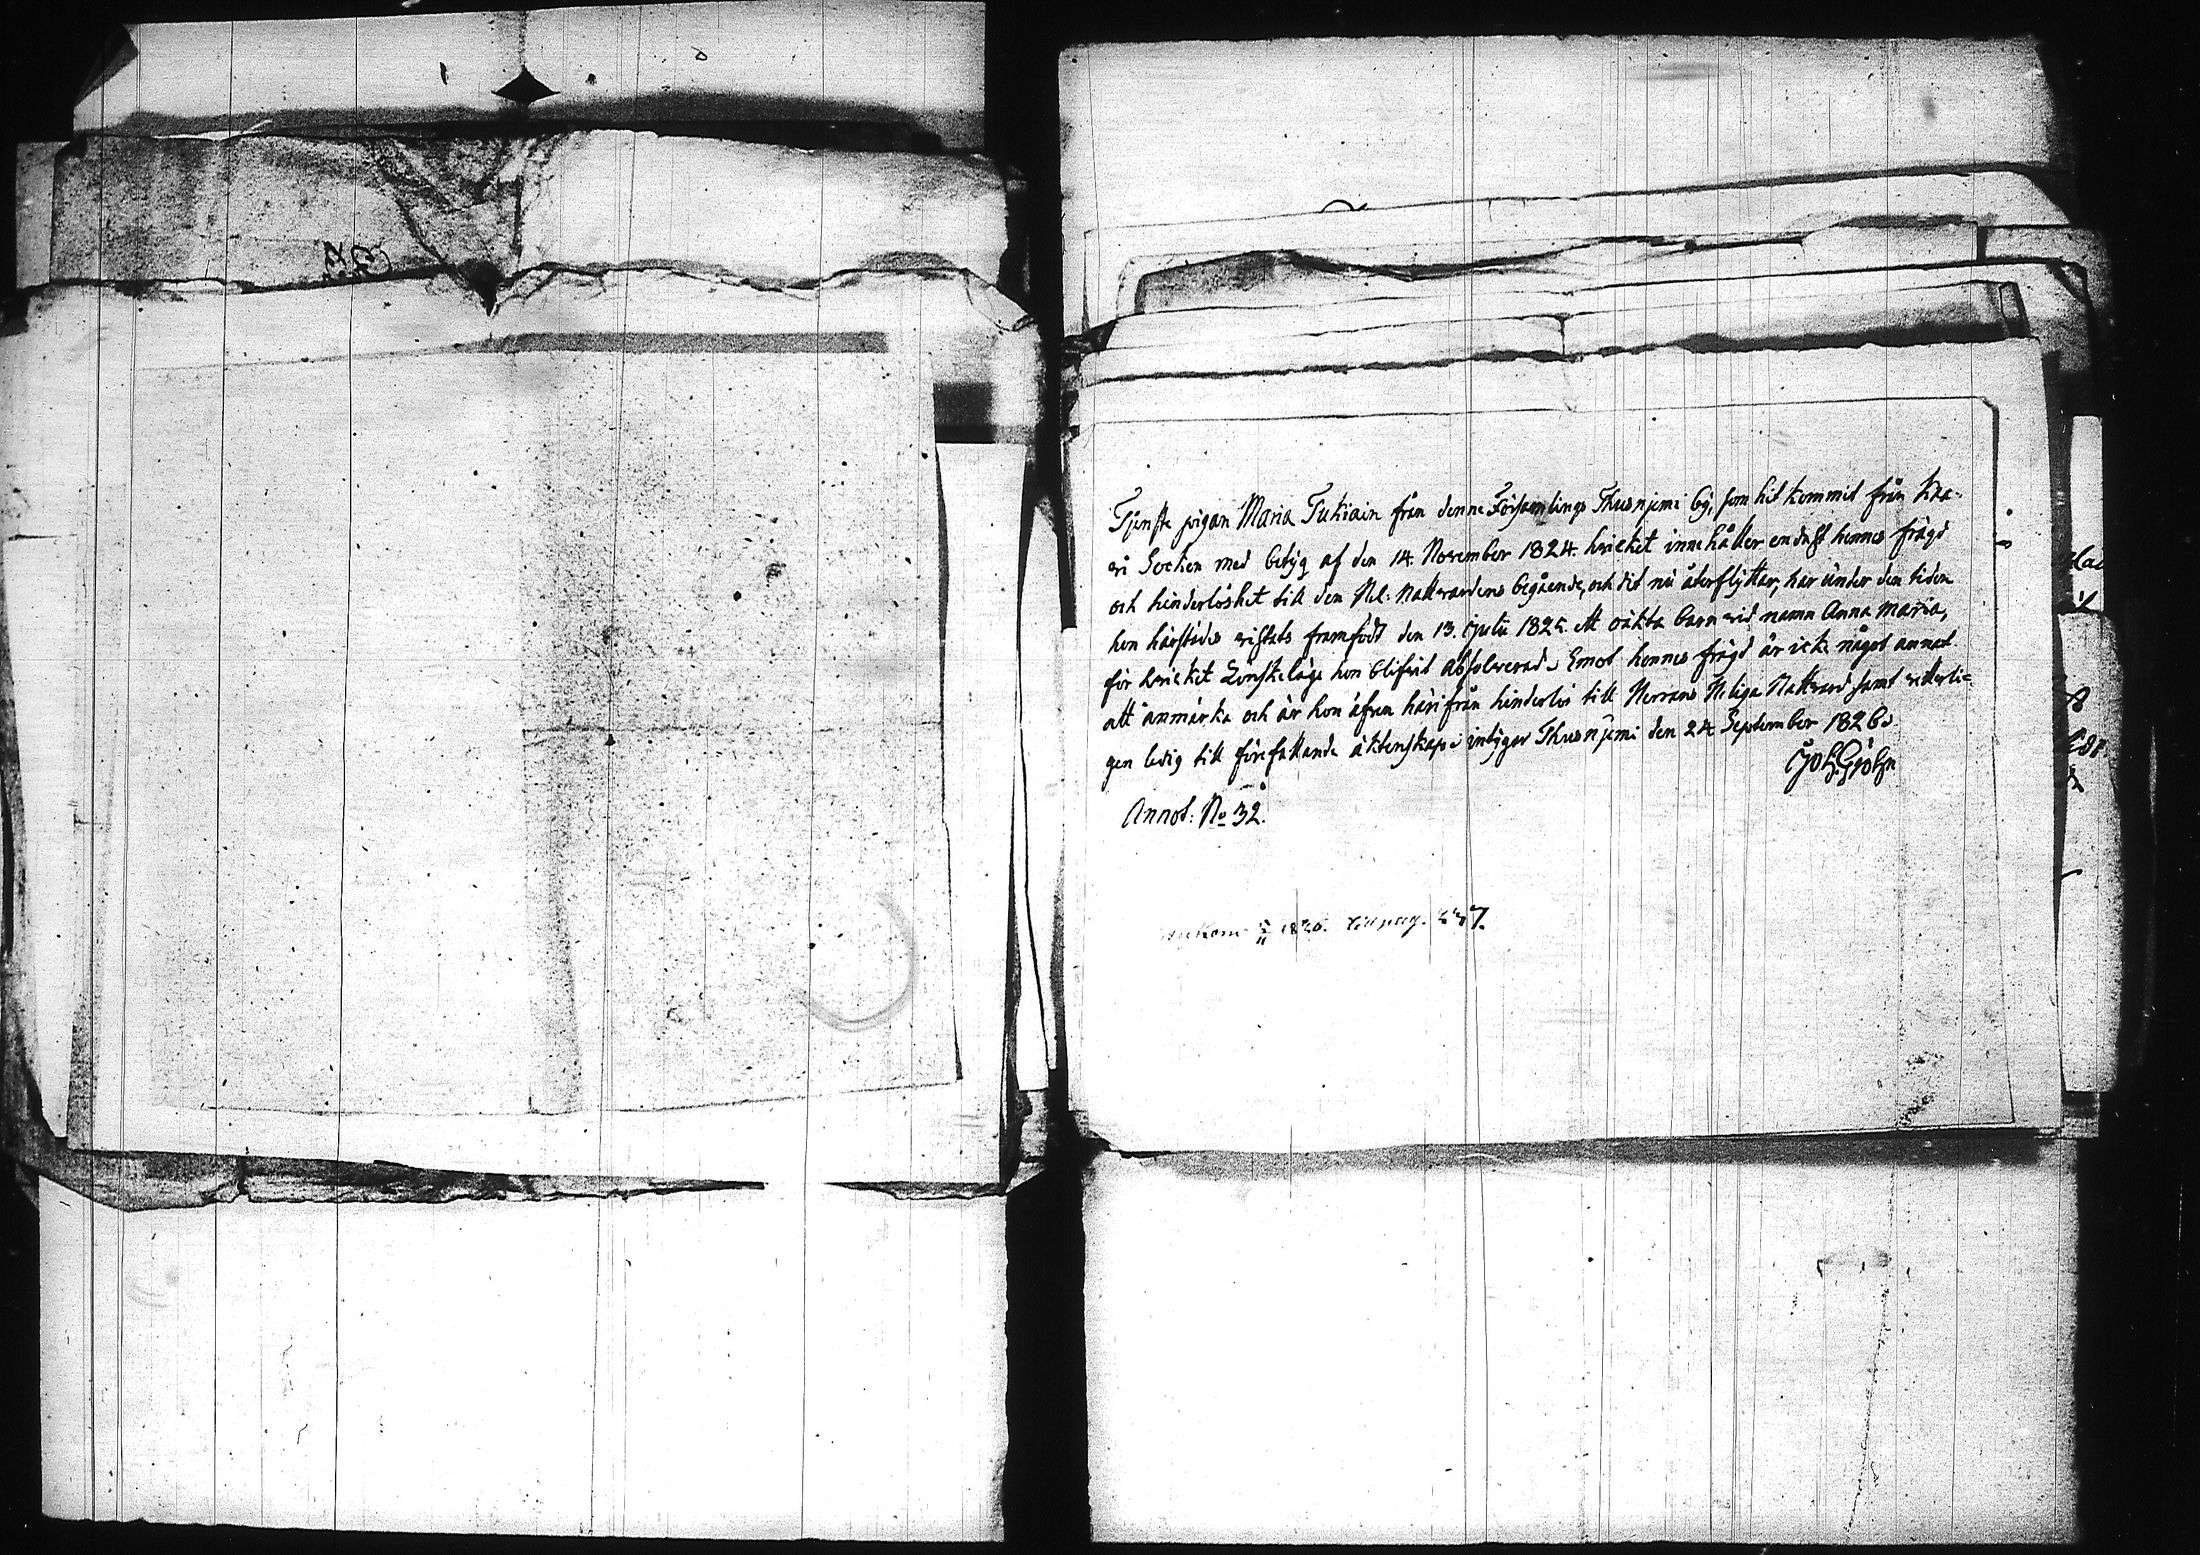 Tjenste pigan Maria Tukiain från denne Församlings Thusnjemi by, som hit kommit från Kka-
vi Socken med betyg af den 14. November 1824. hvicket innehåller endast hennes frägd
och hinderlöshet till den Hel: Nattvardens begående, och dit nu återflyttar, har under den tiden
hon härstädes vistats framfödt den 13. Julii 1825. ett oäkta barn vid namn Anna Maria,
för hvicket Lönskeläge hon blifvit Absolverad. Emot hennes frägd är icke något annat
att anmärka och är hon äfven härifrån hinderlös till Herrans Heliga Nattvard samt vitterli-
gen ledig till förefallande äktenskap; intygar Thusnjemi den 24 September 1826.
Joh. Gröhn
Annot: No 32.
1826. till pag.